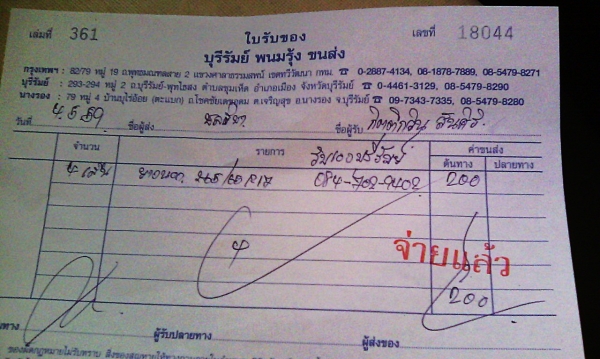 เล่มที่ 361 ใบรับของ เลขที่ 18044
บุรีรัมย์ พนมรุ้ง ขนส่ง
กรุงเทพฯ : 82/79 หมู่ 19 ถ.พุทธมณฑลสาย 2 แขวงศาลาธรรมสพน์ เขตทวีวัฒนา กทม. ☎ 0-2887-4134, 08-1878-7889, 08-5479-8271
บุรีรัมย์ : 293-294 หมู่ 2 ถ.บุรีรัมย์-พุทไธสง ตำบลชุมเห็ด อำเภอเมือง จังหวัดบุรีรัมย์ ☎ 0-4461-3129, 08-5479-8290
นางรอง : 79 หมู่ 4 บ้านบุไร่อ้อย (ตะแบก) ถ.โชคชัยเดชอุดม ต.เจริญสุข อ.นางรอง จ.บุรีรัมย์ ☎ 09-7343-7335, 08-5479-8280
วันที่ 4.5.59 ชื่อผู้ส่ง ชื่อผู้รับ
จำนวน รายการ ค่าขนส่ง
ต้นทาง ปลายทาง
4 เส้น 265/60 R17 084-702-9402 200
4
จ่ายแล้ว
200
ผู้รับปลายทาง ผู้ส่งของ